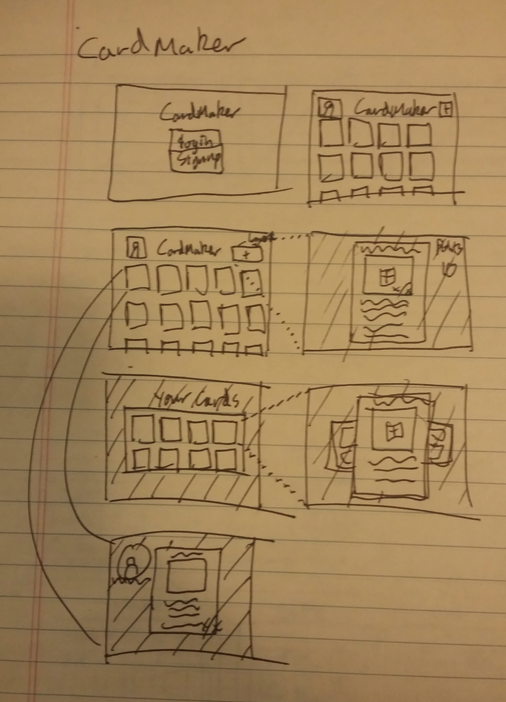 CardMaker
CardMaker
Login
Signup
CardMaker
CardMaker
+
Your Cards